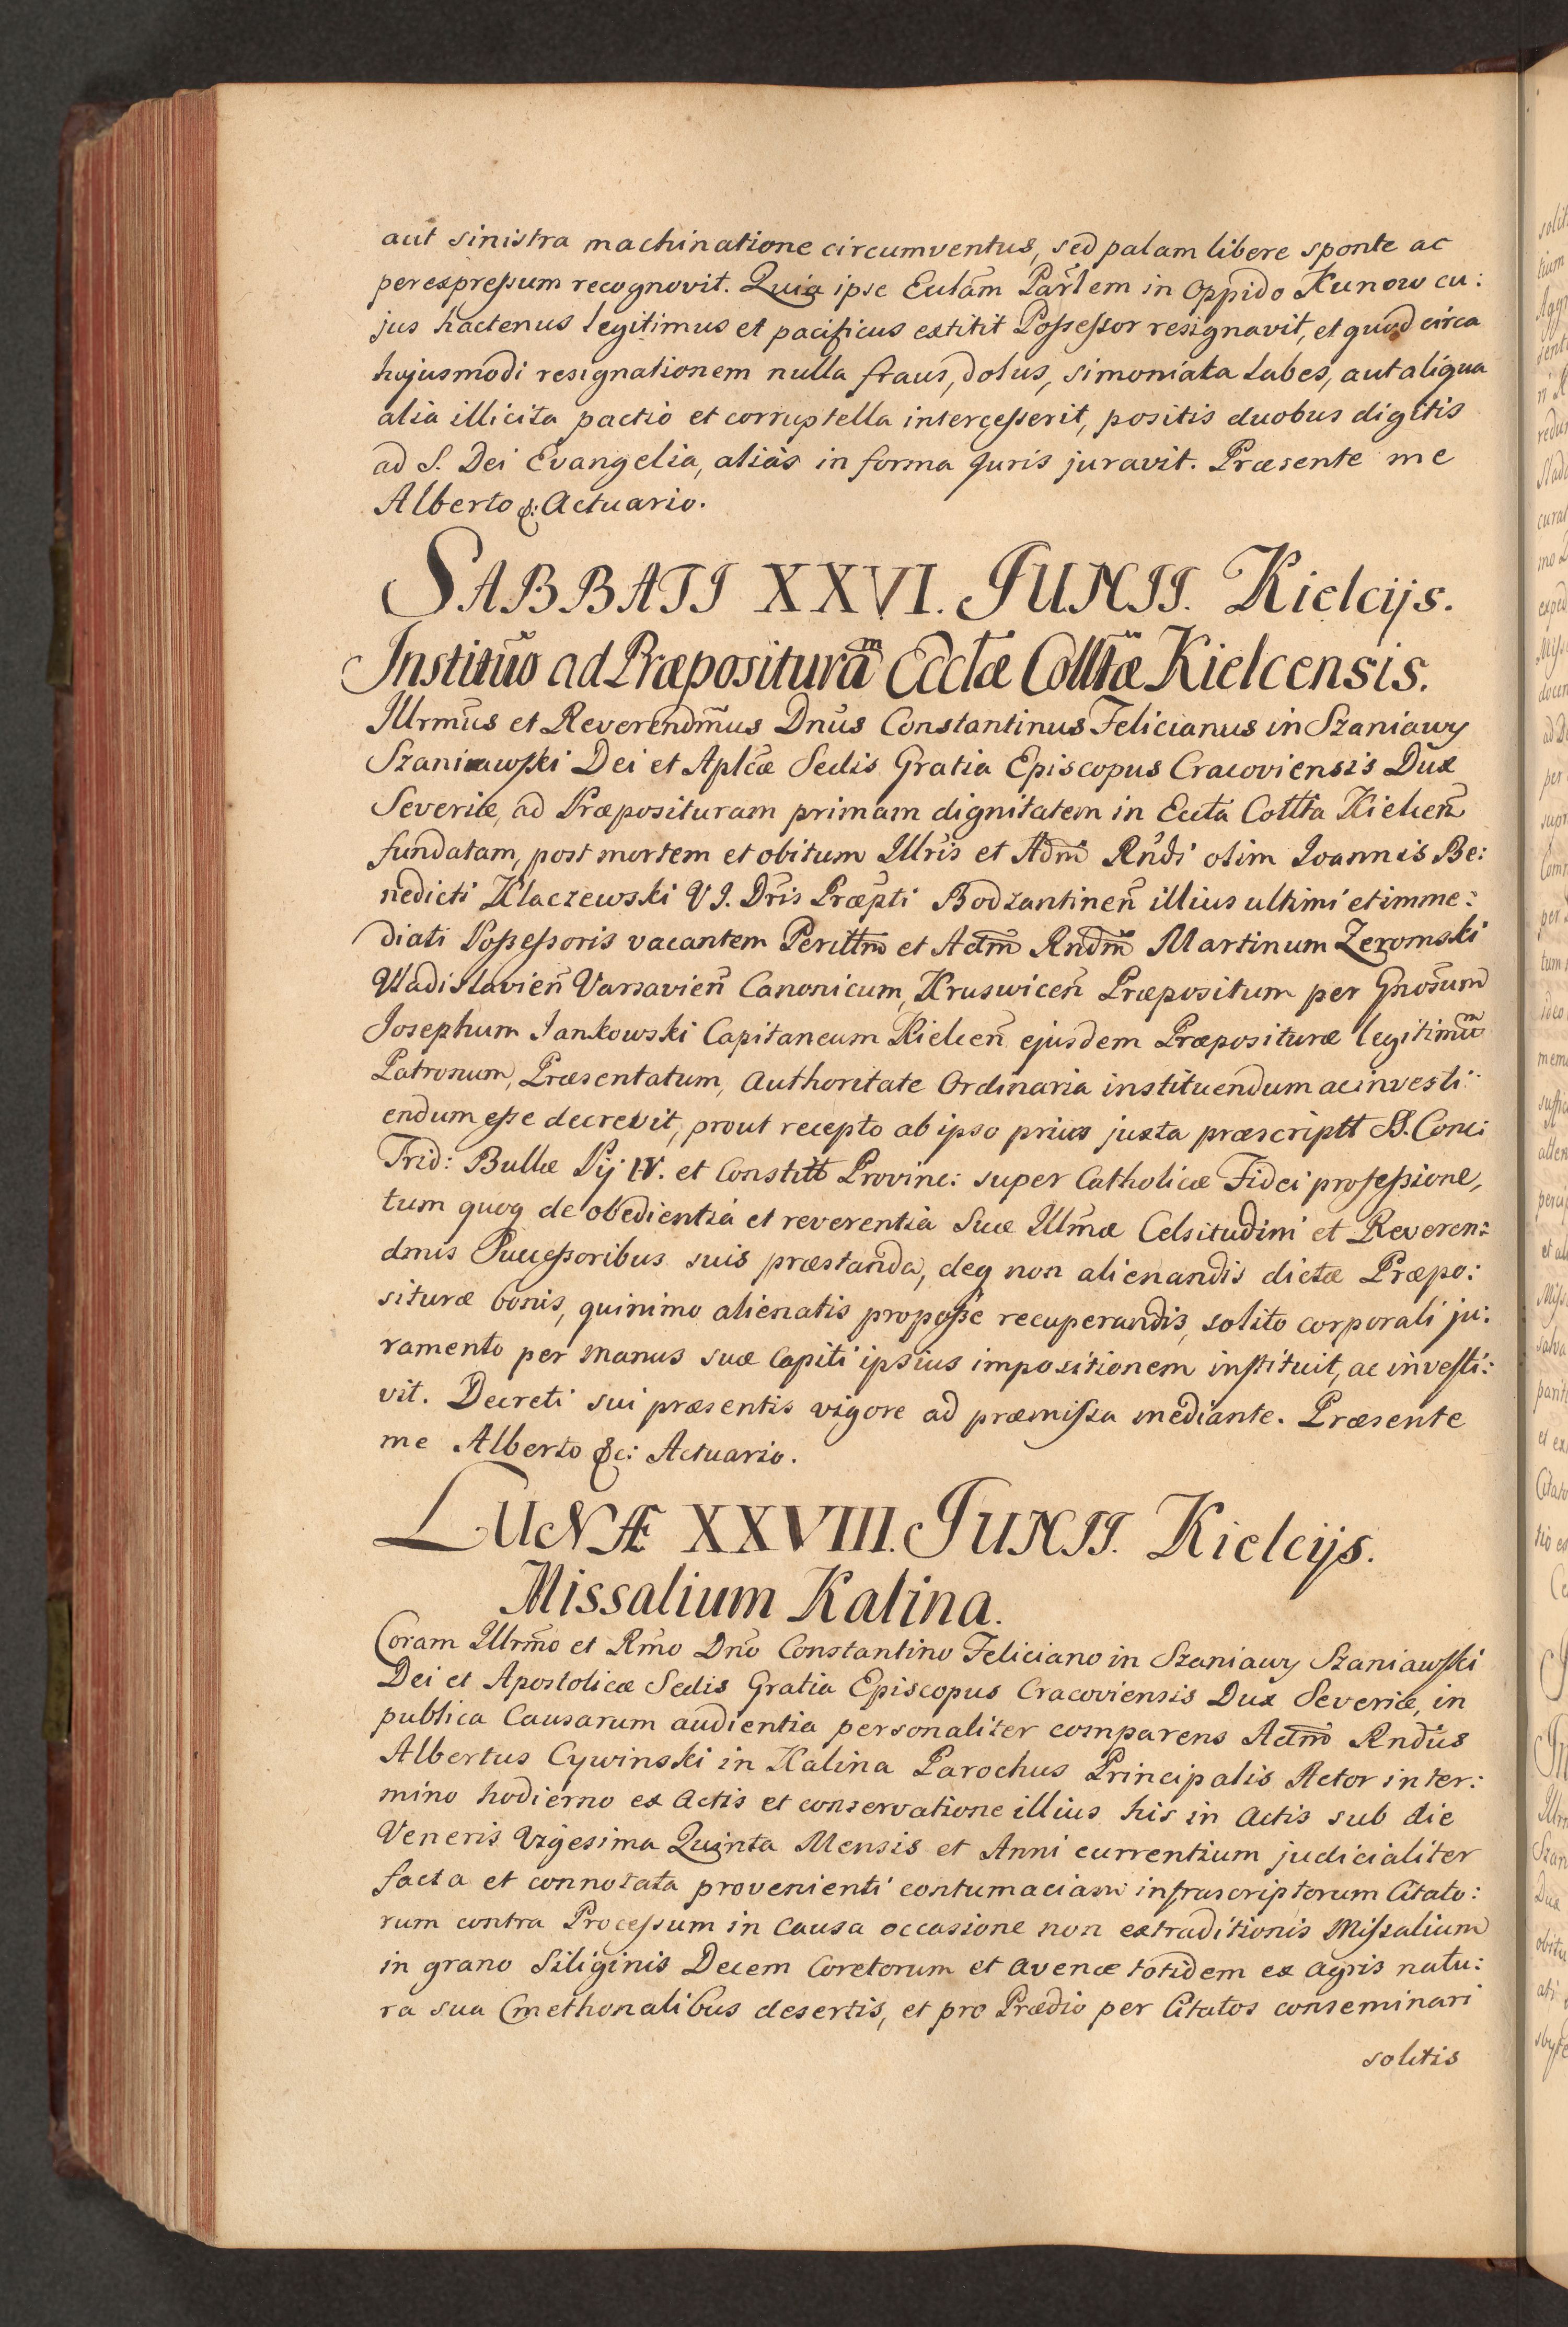 aut sinistra machinatione circumventus, sed palam libere sponte ac
perexpreſsum recognovit. Quia ipse Eccłam Parłem in Oppido Kunow cu:
jus hactenus legitimus et pacificus extitit Poſseſsor resignavit, et quod circa
hujusmodi resignationem nulla fraus, dolus, simoniaca labes, aut aliqua
alia illicita pactio et corruptella interceſserit, positis duobus digitis
ad S. Dei Evangelia, aliàs in forma Juris juravit. Præsente me
Alberto &: Actuario.
SABBATI XXVI. JUNII. Kielcijs.
Institũo ad Præposituram̃ Eccłæ Collłæ Kielcensis.
Illrm̃us et Reverendm̃us Dnũs Constantinus Felicianus in Szaniawy
Szaniawſki Dei et Aplc̃æ Sedis Gratia Episcopus Cracoviensis Dux
Severiæ, ad Præposituram primam dignitatem in Eccła Collła Kielceñ
fundatam, post mortem et obitum Illris̃ et Adm̃ Rndĩ olim Joannis Be:
nedicti Klaczewski VJ. Dris̃ Præpti Bodzantineñ illius ultimi et imme:
diati Poſseſsoris vacantem Perillm̃ et Adm̃ Rndm̃ Martinum Zeromski
Vladislavieñ Varsavieñ Canonicum, Kruswiceñ Præpositum per Gnosũm
Josephum Jankowski Capitaneum Kielceñ ejusdem Præposituræ legitimum̃
Patronum, Præsentatum, Authoritate Ordinaria instituendum ac investi:
endum eſse decrevit, prout recepto ab ipso prius juxta præscriptt SS. Conc:
Trid: Bullæ Pij IV. et Constitt Provinc: super Catholicæ Fidei profeſsione,
tum quoq de obedientia et reverentia Suæ Illmæ̃ Celsitudini et Reveren:
dmis Succeſsoribus suis præstanda, deq non alienandis dictæ Præpo:
situræ bonis, quinimo alienatis propoſse recuperandis, solito corporali ju:
ramento per manus suæ Capiti ipsius impositionem inſtituit, ac inveſti:
vit. Decreti sui præsentis vigore ad præmiſsa mediante. Præsente
me Alberto &c: Actuario.
LUNÆ XXVIII. JUNII. Kielcijs.
Missalium Kalina.
Coram Illrm̃o et Rm̃o Dnõ Constantino Feliciano in Szaniawy Szaniawſki
Dei et Apostolicæ Sedis Gratia Episcopus Cracoviensis Dux Severiæ, in
publica Causarum audientia personaliter comparens Adm̃ Rndũs
Albertus Cywinski in Kalina Parochus Principalis Actor in ter:
mino hodierno ex Actis et conservatione illius his in Actis sub die
Veneris Vigesima Quinta Mensis et Anni currentium judicialiter
facta et connotata provenienti contumaciam infrascriptorum Citato:
rum contra Proceſsum in Causa occasione non extraditionis Miſsalium
in grano Siliginis Decem Coretorum et avenæ totidem ex agris natu:
ra sua Cmethonalibus desertis, et pro Prædio per Citatos conseminari
solitis